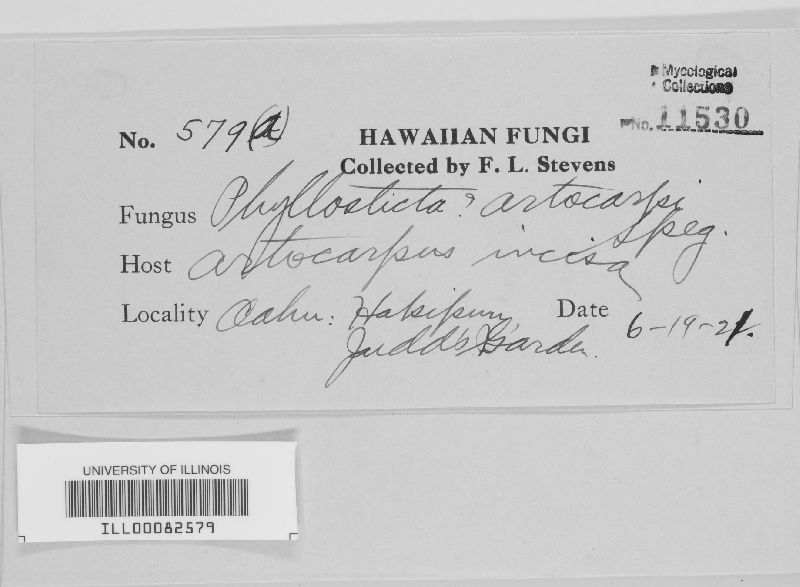 Mycological
Collections
No. 11530
No. 579(a)
HAWAIIAN FUNGI
Collected by F. L. Stevens
Fungus Phyllosticta? artocarpi
Speg.
Host Artocarpus incisa
Locality Oahu: Hakipuu, Date 6-19-21.
Judd's Garden.
UNIVERSITY OF ILLINOIS
ILL00082579